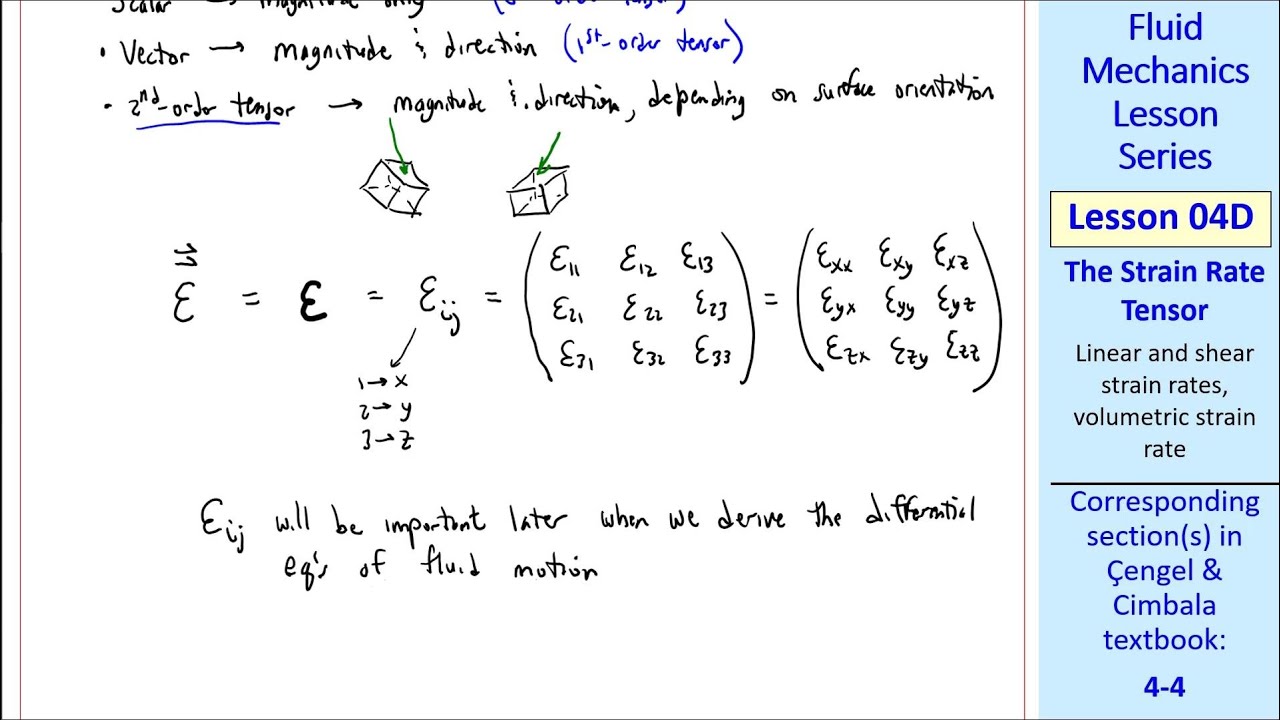 Scalar → magnitude only (
-order tensor)
• Vector → magnitude & direction (1st-order tensor)
• 2nd-order tensor → magnitude & direction, depending on surface orientation
ε = ε = εij = ( ε11 ε12 ε13 ) = ( εxx εxy εxz )
ε21 ε22 ε23 εyx εyy εyz
ε31 ε32 ε33 εzx εzy εzz
1→x
2→y
3→z
εij will be important later when we derive the differential
eq's of fluid motion
Fluid
Mechanics
Lesson
Series
Lesson 04D
The Strain Rate
Tensor
Linear and shear
strain rates,
volumetric strain
rate
Corresponding
section(s) in
Çengel &
Cimbala
textbook:
4-4